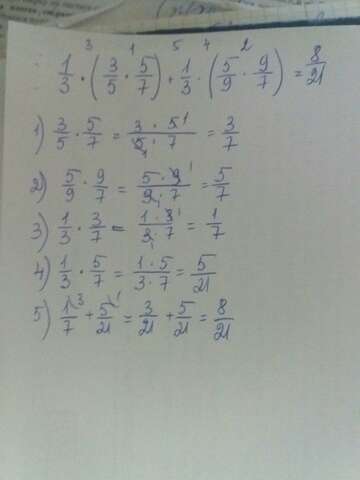 3 1 5 4 2
1/3 · (3/5 · 5/7) + 1/3 · (5/9 · 9/7) = 8/21
1) 3/5 · 5/7 = 3 · 5¹/5₁ · 7 = 3/7
2) 5/9 · 9/7 = 5 · 9¹/9₁ · 7 = 5/7
3) 1/3 · 3/7 = 1 · 3¹/3₁ · 7 = 1/7
4) 1/3 · 5/7 = 1 · 5/3 · 7 = 5/21
5) 1\³/7 + 5\¹/21 = 3/21 + 5/21 = 8/21